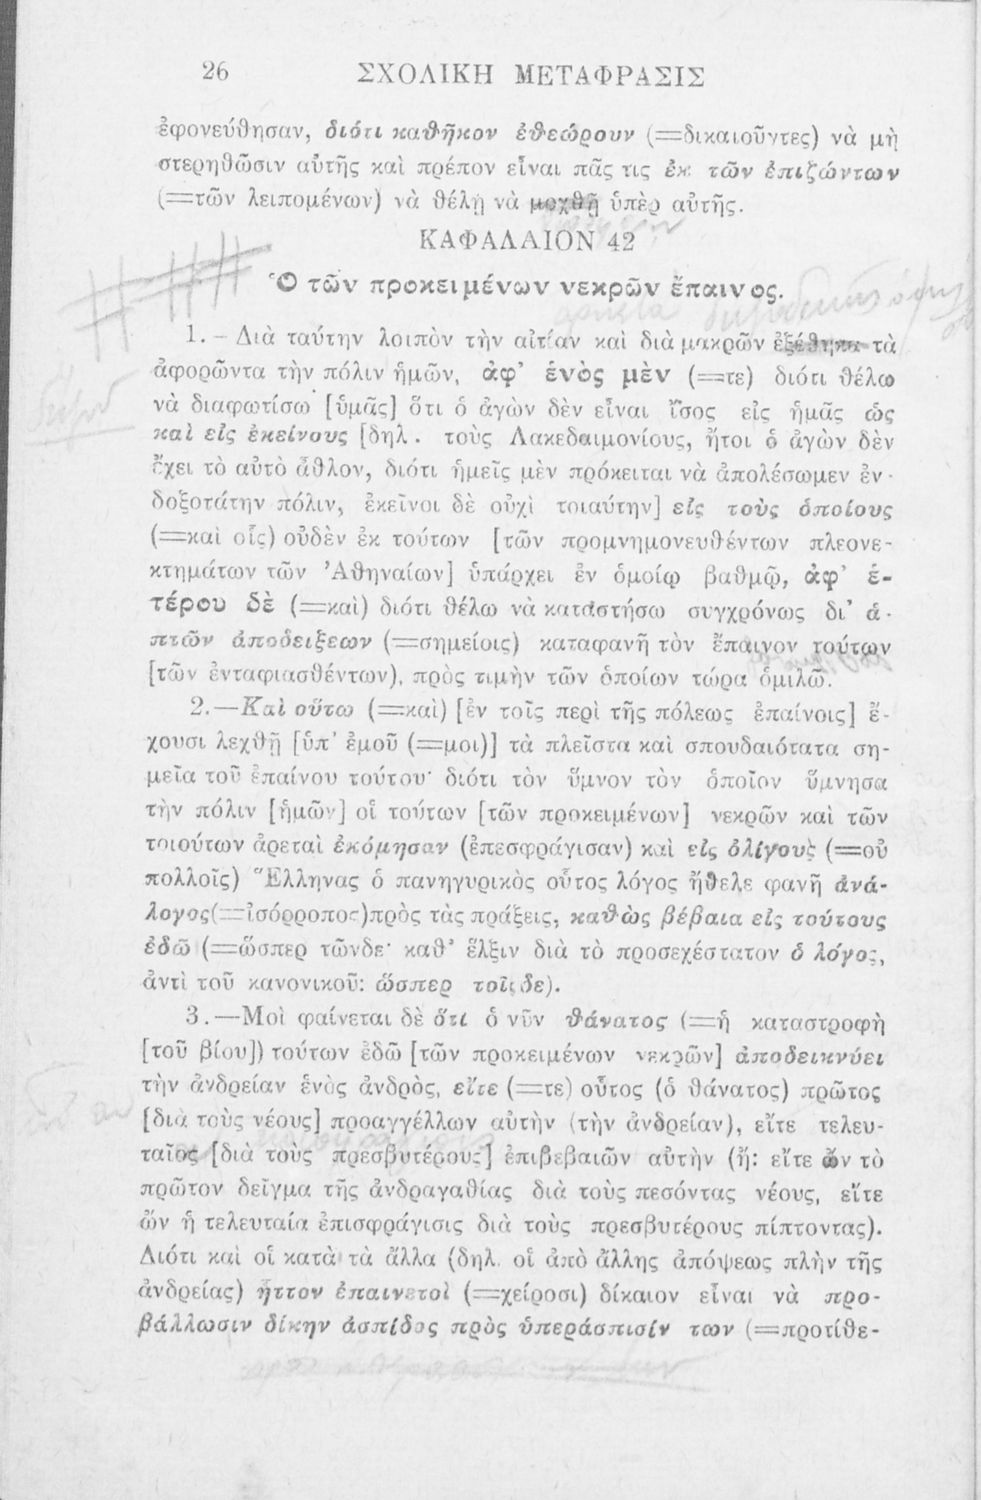 26 ΣΧΟΛΙΚΗ ΜΕΤΑΦΡΑΣΙΣ
ἐφονεύθησαν, διότι καθῆκον ἐθεώρουν (=δικαιοῦντες) νὰ μὴ
στερηθῶσιν αὐτῆς καὶ πρέπον εἶναι πᾶς τις ἐκ τῶν ἐπιζώντων
(=τῶν λειπομένων) νὰ θέλῃ νὰ μοχθῇ ὑπὲρ αὐτῆς.
ΚΑΦΑΛΑΙΟΝ 42
Ὁ τῶν προκειμένων νεκρῶν ἔπαινος.
1. – Διὰ ταύτην λοιπὸν τὴν αἰτίαν καὶ διὰ μακρῶν ἐξέθηκα τὰ
ἀφορῶντα τὴν πόλιν ἡμῶν, ἀφ’ ἑνὸς μὲν (=τε) διότι θέλω
νὰ διαφωτίσω [ὑμᾶς] ὅτι ὁ ἀγὼν δὲν εἶναι ἴσος εἰς ἡμᾶς ὡς
καὶ εἰς ἐκείνους [δηλ. τοὺς Λακεδαιμονίους, ἤτοι ὁ ἀγὼν δὲν
ἔχει τὸ αὐτὸ ἆθλον, διότι ἡμεῖς μὲν πρόκειται νὰ ἀπολέσωμεν ἐν-
δοξοτάτην πόλιν, ἐκεῖνοι δὲ οὐχὶ τοιαύτην] εἰς τοὺς ὁποίους
(=καὶ οἷς) οὐδὲν ἐκ τούτων [τῶν προμνημονευθέντων πλεονε-
κτημάτων τῶν Ἀθηναίων] ὑπάρχει ἐν ὁμοίῳ βαθμῷ, ἀφ’ ἑ-
τέρου δὲ (=καὶ) διότι θέλω νὰ καταστήσω συγχρόνως δι’ ἁ-
πτῶν ἀποδείξεων (=σημείοις) καταφανῆ τὸν ἔπαινον τούτων
[τῶν ἐνταφιασθέντων), πρὸς τιμὴν τῶν ὁποίων τώρα ὁμιλῶ.
2.—Καὶ οὕτω (=καὶ) [ἐν τοῖς περὶ τῆς πόλεως ἐπαίνοις] ἔ-
χουσι λεχθῆ [ὑπ’ ἐμοῦ (=μοι)] τὰ πλεῖστα καὶ σπουδαιότατα ση-
μεῖα τοῦ ἐπαίνου τούτου· διότι τὸν ὕμνον τὸν ὁποῖον ὕμνησα
τὴν πόλιν [ἡμῶν] οἱ τούτων [τῶν προκειμένων] νεκρῶν καὶ τῶν
τοιούτων ἀρεταὶ ἐκόμησαν (ἐπεσφράγισαν) καὶ εἰς ὀλίγους (=οὐ
πολλοῖς) Ἕλληνας ὁ πανηγυρικὸς οὗτος λόγος ἤθελε φανῆ ἀνά-
λογος(=ἰσόρροπος)πρὸς τὰς πράξεις, καθὼς βέβαια εἰς τούτους
ἐδῶ (=ὥσπερ τῶνδε· καθ’ ἕλξιν διὰ τὸ προσεχέστατον ὁ λόγος,
ἀντὶ τοῦ κανονικοῦ: ὥσπερ τοῖςδε).
3.—Μοὶ φαίνεται δὲ ὅτι ὁ νῦν θάνατος (=ἡ καταστροφὴ
[τοῦ βίου]) τούτων ἐδῶ [τῶν προκειμένων νεκρῶν] ἀποδεικνύει
τὴν ἀνδρείαν ἑνὸς ἀνδρὸς, εἴτε (=τε) οὗτος (ὁ θάνατος) πρῶτος
[διὰ τοὺς νέους] προαγγέλλων αὐτὴν (τὴν ἀνδρείαν), εἴτε τελευ-
ταῖος [διὰ τοὺς πρεσβυτέρους] ἐπιβεβαιῶν αὐτὴν (ἤ: εἴτε ὢν τὸ
πρῶτον δεῖγμα τῆς ἀνδραγαθίας διὰ τοὺς πεσόντας νέους, εἴτε
ὢν ἡ τελευταία ἐπισφράγισις διὰ τοὺς πρεσβυτέρους πίπτοντας).
Διότι καὶ οἱ κατὰ τὰ ἄλλα (δηλ. οἱ ἀπὸ ἄλλης ἀπόψεως πλὴν τῆς
ἀνδρείας) ἧττον ἐπαινετοὶ (=χείροσι) δίκαιον εἶναι νὰ προ-
βάλλωσιν δίκην ἀσπίδος πρὸς ὑπεράσπισίν των (=προτίθε-